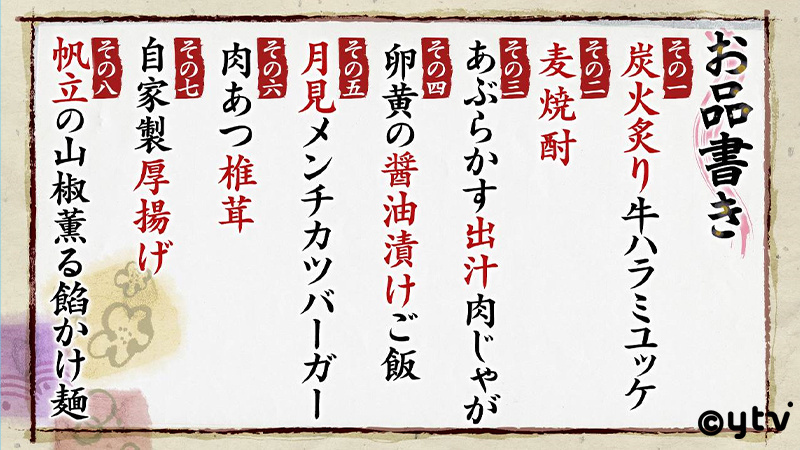 お品書き
その一
炭火炙り牛ハラミユッケ
その二
麦焼酎
その三
あぶらかす出汁肉じゃが
その四
卵黄の醤油漬けご飯
その五
月見メンチカツバーガー
その六
肉あつ椎茸
その七
自家製厚揚げ
その八
帆立の山椒薫る餡かけ麺
©ytv